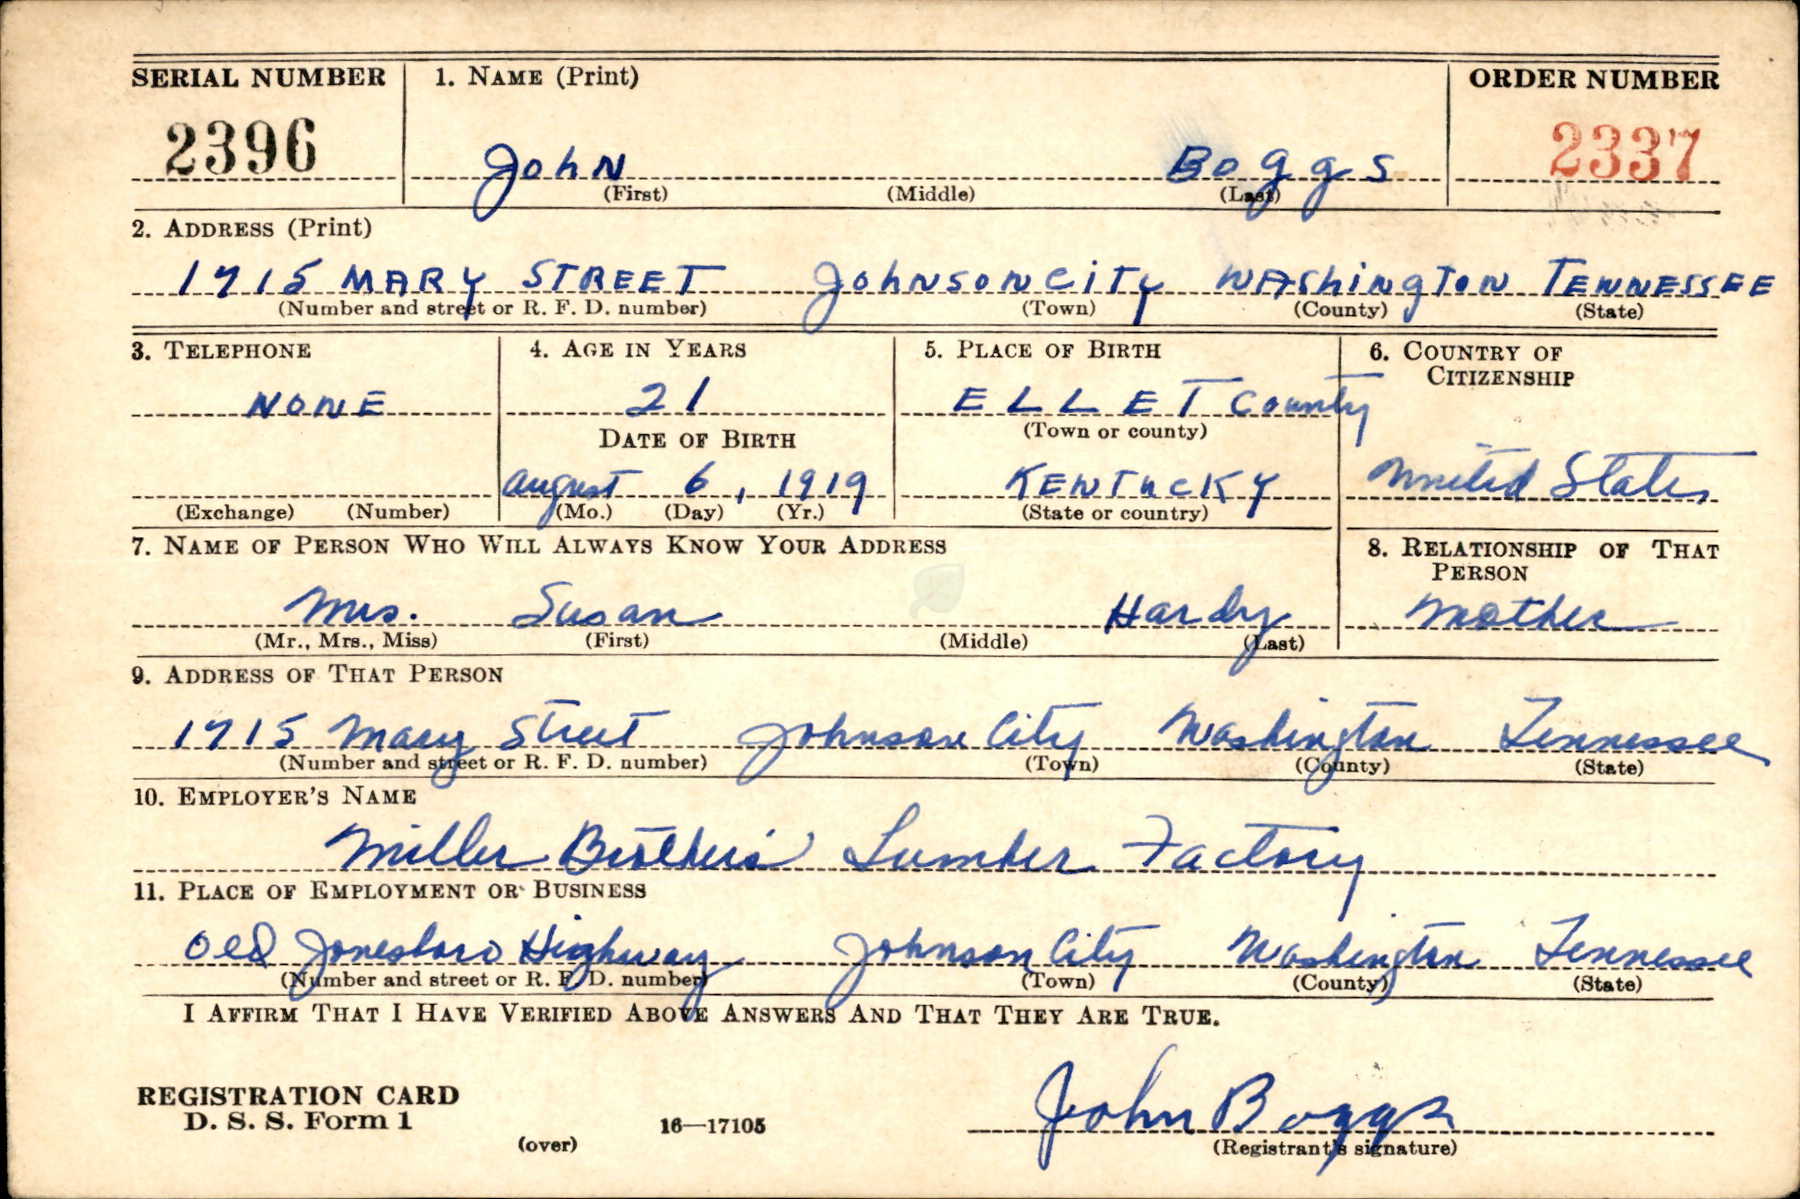 SERIAL NUMBER 1. NAME (Print) ORDER NUMBER
2396 John Boggs 2337
(First) (Middle) (Last)
2. ADDRESS (Print)
1715 MARY STREET JOHNSON CITY WASHINGTON TENNESSEE
(Number and street or R. F. D. number) (Town) (County) (State)
3. TELEPHONE 4. AGE IN YEARS 5. PLACE OF BIRTH 6. COUNTRY OF
CITIZENSHIP
NONE 21 ELLET County
DATE OF BIRTH (Town or county)
August 6, 1919 KENTUCKY United States
(Exchange) (Number) (Mo.) (Day) (Yr.) (State or country)
7. NAME OF PERSON WHO WILL ALWAYS KNOW YOUR ADDRESS 8. RELATIONSHIP OF THAT
PERSON
Mrs. Susan Hardy Mother
(Mr., Mrs., Miss) (First) (Middle) (Last)
9. ADDRESS OF THAT PERSON
1715 Mary Street Johnson City Washington Tennessee
(Number and street or R. F. D. number) (Town) (County) (State)
10. EMPLOYER'S NAME
Miller Brothers' Lumber Factory
11. PLACE OF EMPLOYMENT OR BUSINESS
Old Jonesboro Highway Johnson City Washington Tennessee
(Number and street or R. F. D. number) (Town) (County) (State)
I AFFIRM THAT I HAVE VERIFIED ABOVE ANSWERS AND THAT THEY ARE TRUE.
REGISTRATION CARD
D. S. S. Form 1 16—17105 John Boggs
(over) (Registrant's signature)